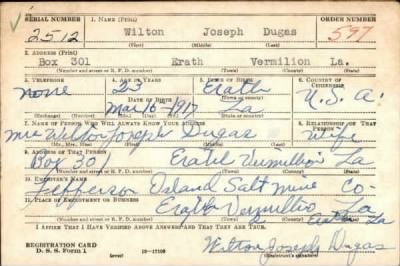 SERIAL NUMBER 1. NAME (Print) ORDER NUMBER
2512 Wilton Joseph Dugas 597
(First) (Middle) (Last)
2. ADDRESS (Print)
Box 301 Erath Vermilion La.
(Number and street or R. F. D. number) (Town) (County) (State)
3. TELEPHONE 4. AGE IN YEARS 5. PLACE OF BIRTH 6. COUNTRY OF CITIZENSHIP
none 23 Erath U.S.A.
DATE OF BIRTH (Town or county)
Mar 16-1917 La
(Exchange) (Number) (Mo.) (Day) (Yr.) (State or country)
7. NAME OF PERSON WHO WILL ALWAYS KNOW YOUR ADDRESS 8. RELATIONSHIP OF THAT PERSON
Mrs Wilton Joseph Dugas Wife
9. ADDRESS OF THAT PERSON
Box 30 Erath Vermillion La
(Number and street or R. F. D. number) (Town) (County) (State)
10. EMPLOYER'S NAME
Jefferson Island Salt Mine Co-
11. PLACE OF EMPLOYMENT OR BUSINESS
Erath Vermillio La
(Number and street or R. F. D. number) (Town) (County) (State)
Erath La
I AFFIRM THAT I HAVE VERIFIED ABOVE ANSWERS AND THAT THEY ARE TRUE.
REGISTRATION CARD
D. S. S. Form 1 (over) Wilton Joseph Dugas